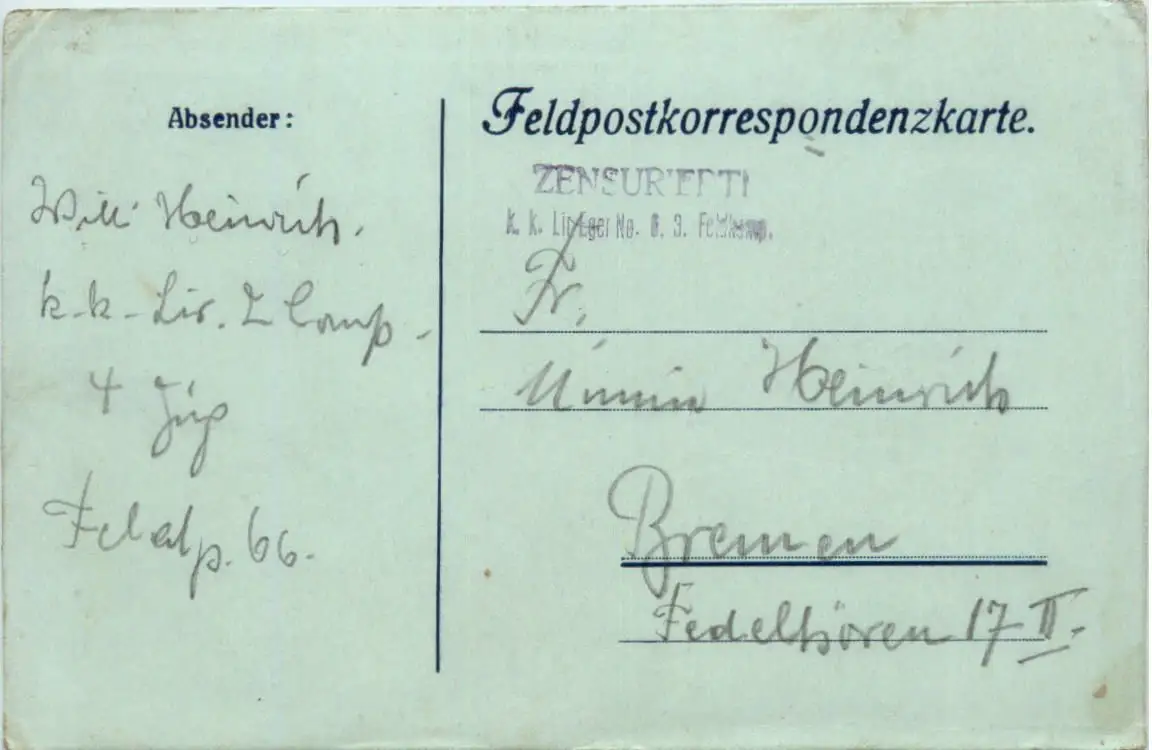 Absender:
Willi Heinrich.
k.-k.-Lir. Z Comp.
4 Zug
Feldp. 66.
Feldpostkorrespondenzkarte.
ZENSURIERT!
K. K. Lir Eger No. 6. 3. Feldkomp.
Fr.
Minnie Heinrich
Bremen
Fedelhören 17 II.